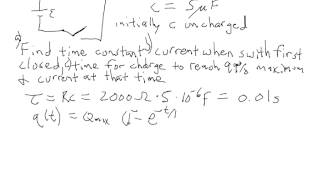 ε
C = 5μF
initially C uncharged
a) Find time constant b) current when swith first
closed, c) time for charge to reach 99% maximum
& current at that time
τ = RC = 2000Ω · 5 · 10⁻⁶F = 0.01s
q(t) = Qmax (1 - e^-t/